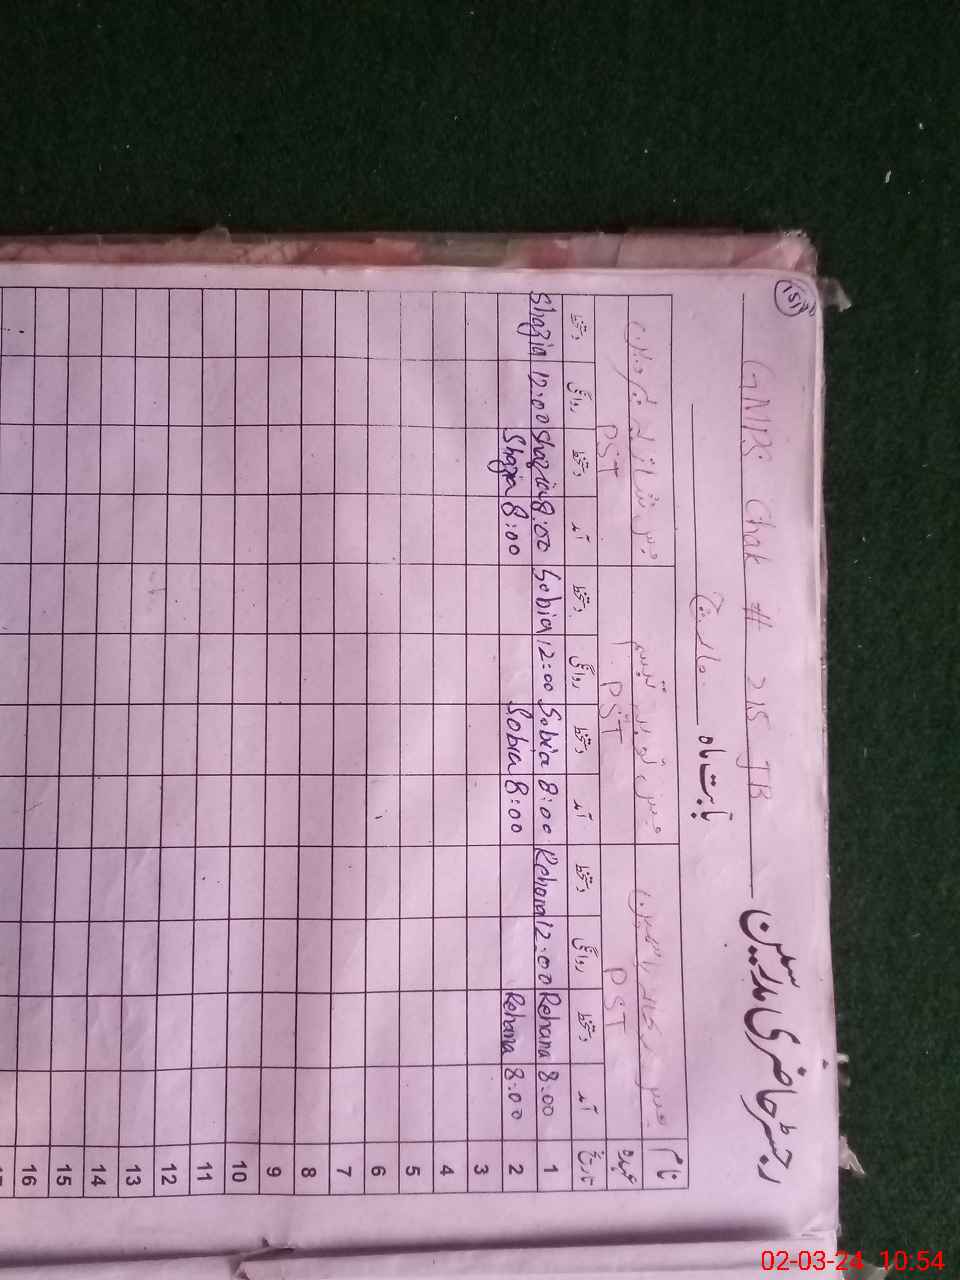 رجسٹر حاضری مدرسین GMPS Chak # 215 JB
بابت ماہ مارچ
نام مس ریحانہ یاسمین مس ثوبیہ تبسم مس شازیہ
عہدہ PST PST PST
تاریخ آمد دستخط روانگی دستخط آمد دستخط روانگی دستخط آمد دستخط روانگی دستخط
1 8:00 Rehana 12:00 Rehana 8:00 Sobia 12:00 Sobia 8:00 Shazia 12:00 Shazia
2 8:00 Rehana 8:00 Sobia 8:00 Shazia
3
4
5
6
7
8
9
10
11
12
13
14
15
16
02-03-24 10:54